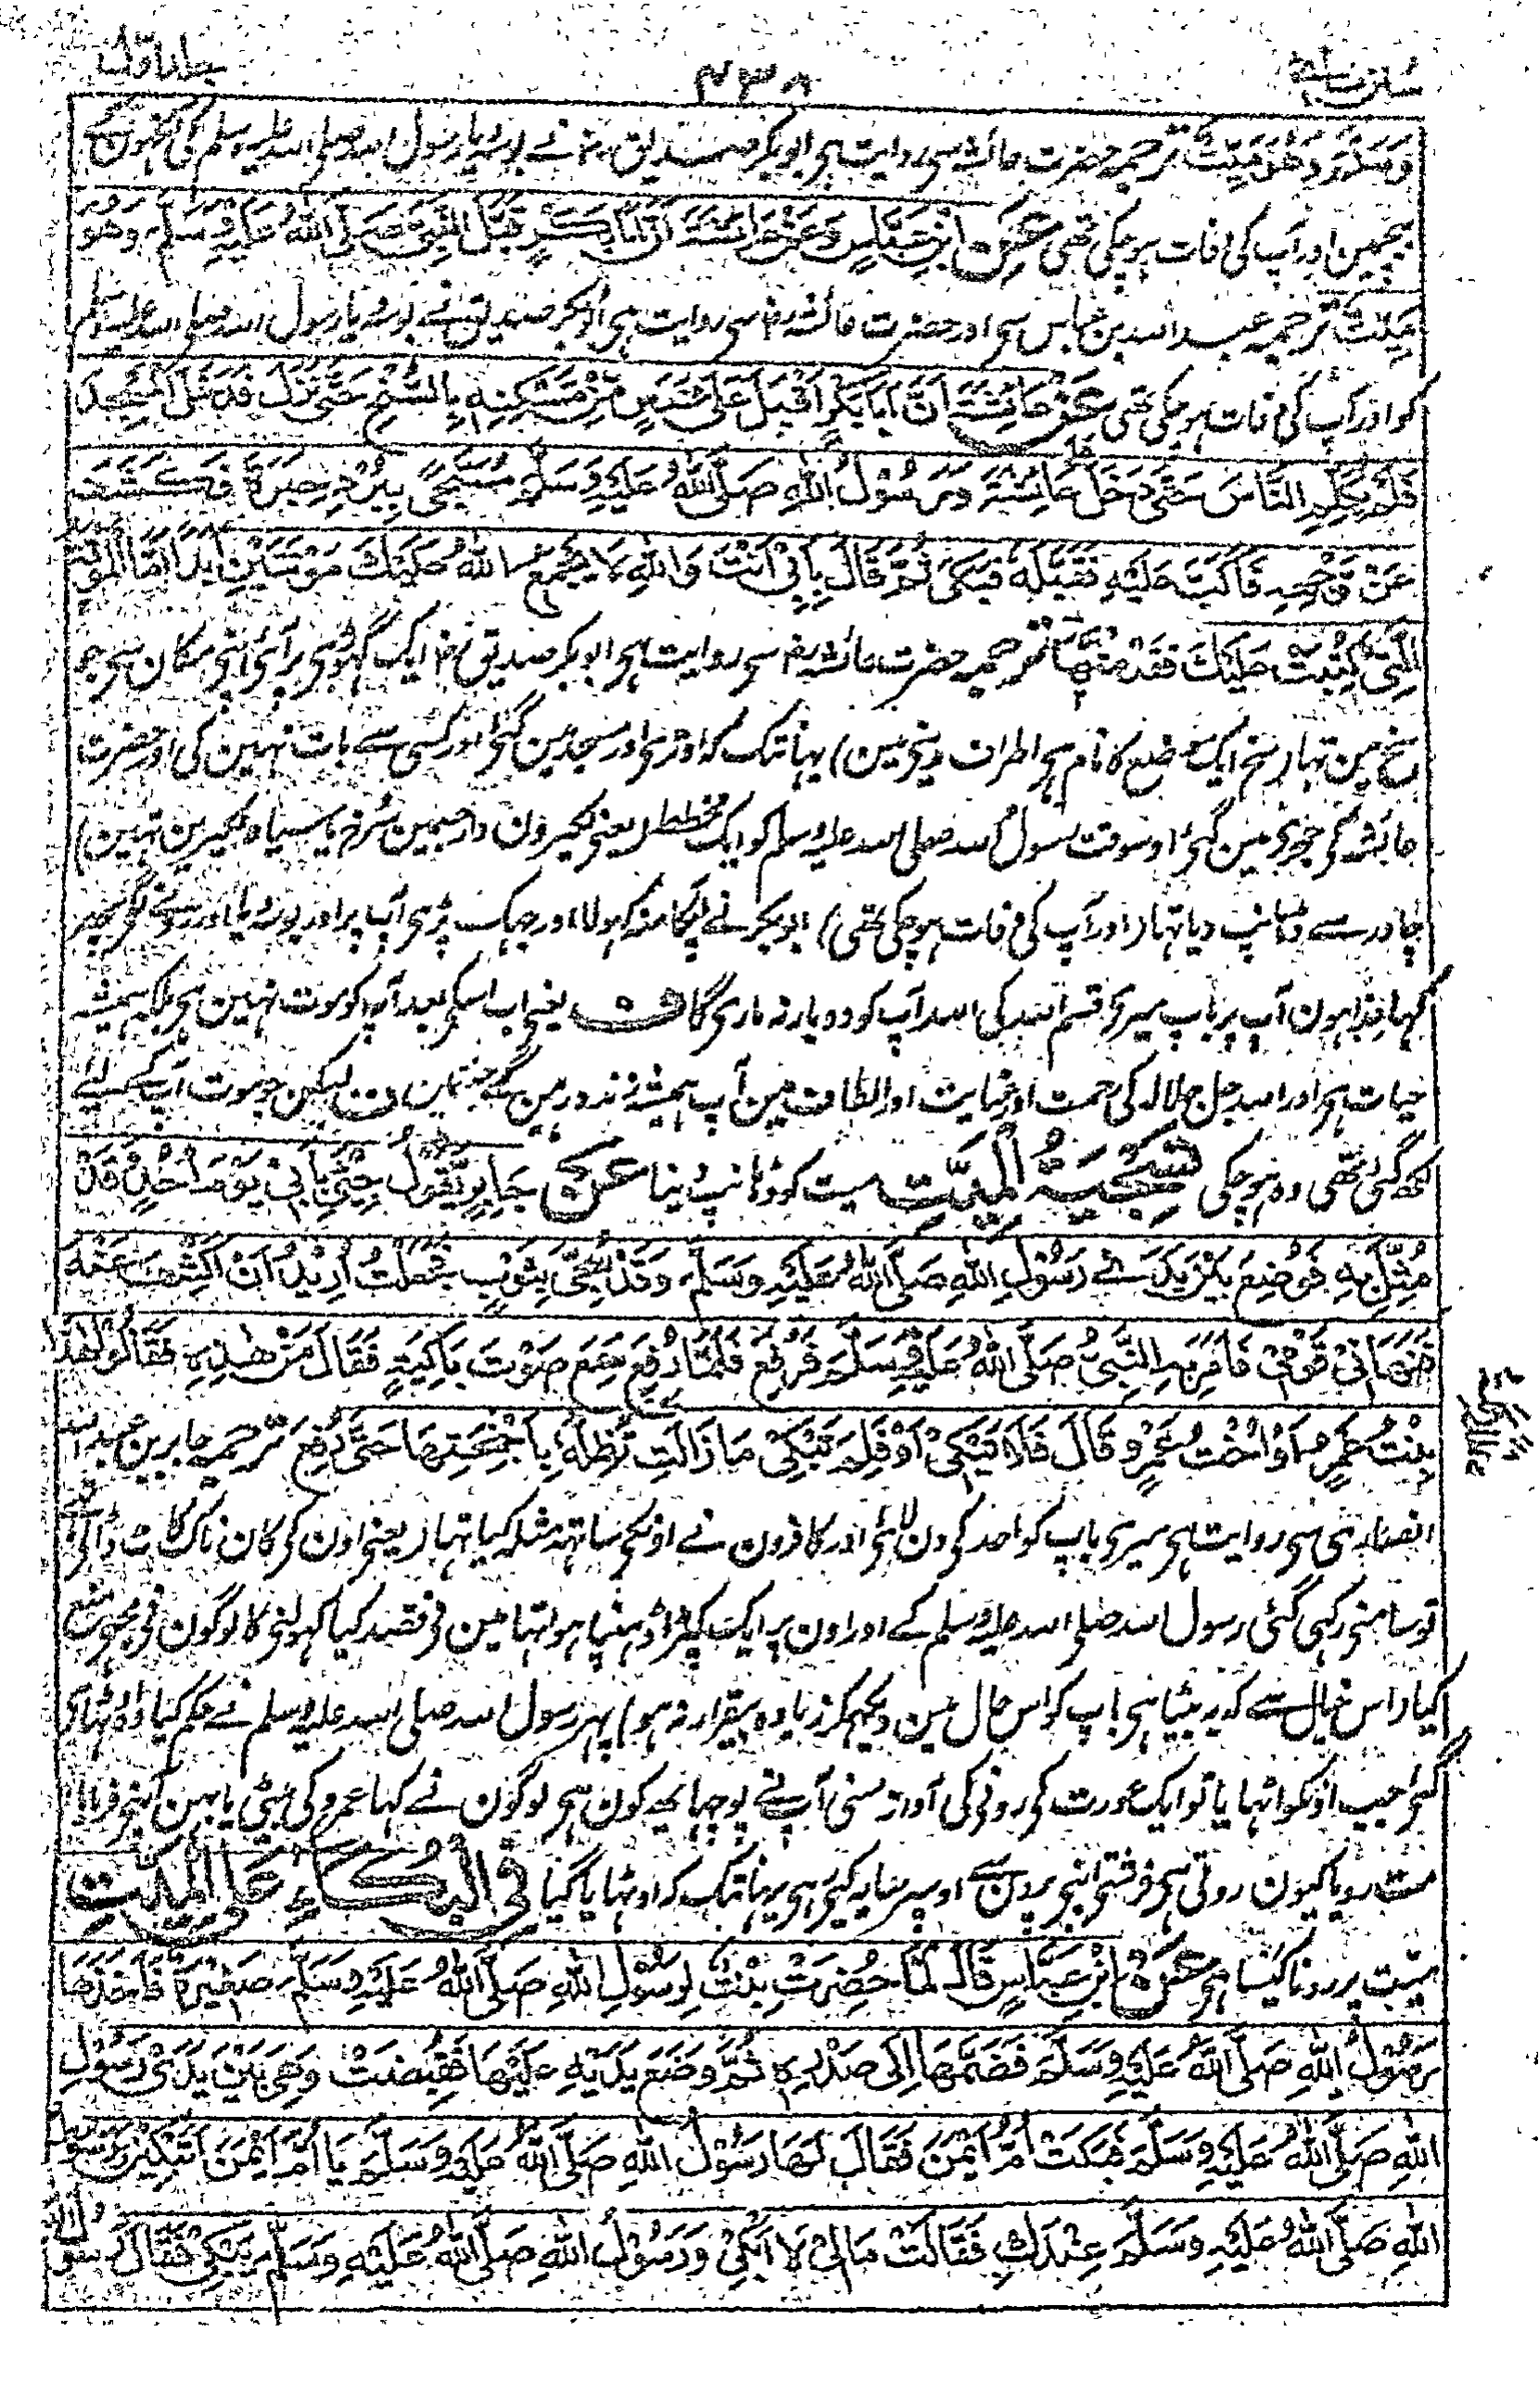 جلد اول ۴۳۸ سنن نسائی
وَسَلَّمَ وَهُوَ مَيِّتٌ ترجمہ حضرت عائشہ سی روایت ہی ابوبکر صدیق رض نے بوسہ یا رسول اللہ صلی اللہ علیہ وسلم کی آنکھون کے
بیچمین اور آپ کی وفات ہوچکی تھی عَنِ ابْنِ عَبَّاسٍ وَعَنْ عَائِشَةَ أَنَّ أَبَا بَكْرٍ قَبَّلَ النَّبِيَّ صَلَّى اللهُ عَلَيْهِ وَسَلَّمَ وَهُوَ
مَيِّتٌ ترجمہ عبد اللہ بن عباس سی اور حضرت عائشہ رض سی روایت ہی ابوبکر صدیق نے بوسہ یا رسول اللہ صلی اللہ علیہ وسلم
کو اور آپ کی وفات ہوچکی تھی عَنْ عَائِشَةَ أَنَّ أَبَا بَكْرٍ أَقْبَلَ عَلَى فَرَسٍ مِنْ مَسْكَنِهِ بِالسُّنْحِ حَتَّى نَزَلَ فَدَخَلَ الْمَسْجِدَ
فَلَمْ يُكَلِّمِ النَّاسَ حَتَّى دَخَلَ عَلَى عَائِشَةَ وَرَسُوْلُ اللهِ صَلَّى اللهُ عَلَيْهِ وَسَلَّمَ مُسَجًّى بِبُرْدِ حِبَرَةٍ فَكَشَفَ
عَنْ وَّجْهِهِ فَأَكَبَّ عَلَيْهِ فَقَبَّلَهُ فَبَكَى ثُمَّ قَالَ بِأَبِيْ أَنْتَ وَاللهِ لَا يَجْمَعُ اللهُ عَلَيْكَ مَوْتَتَيْنِ أَبَدًا أَمَّا الْمَوْتَةُ
الَّتِيْ كُتِبَتْ عَلَيْكَ فَقَدْ مِتَّهَا ترجمہ حضرت عائشہ رض سی روایت ہی ابوبکر صدیق رض ایک گہوڑی پر آئی اپنی مکان سی جو
سنح مین تہا (سنح ایک موضع کا نام ہی اطراف مدینی مین) یہانتک کہ اوتری اور مسجد مین گئی اور کسی سے بات نہین کی اور حضرت
عائشہ کی حجری مین گئی اوسوقت رسول اللہ صلی اللہ علیہ وسلم کو ایک مخطط (یعنی لکیرون دار جسمین سرخ یا سیاہ لکیرین تہین)
چادر سے ڈھانپ دیا تہا (اور آپ کی وفات ہوچکی تھی) ابوبکر نے آپکا منہ کہولا اور جہک پڑی آپ پر اور بوسہ دیا اور رونی لگی پہر
کہا فدا ہون آپ پر باپ میری قسم اللہ کی اللہ آپ کو دوبارنہ ماری گا ف یعنی اب اسکی بعد آپ کو موت نہین ہی بلکہ ہمیشہ
حیات ہی اور اللہ جل جلالہ کی رحمت اور عنایت اور الطاف مین آپ ہمیشہ زندہ رہین گے جنتمین ف لیکن جو موت آپ کے لئے
لکھ گئی تھی وہ ہوچکی تَسْجِيَةُ الْمَيِّتِ میت کو ڈھانپ دینا عَنْ جَابِرٍ يَّقُوْلُ جِيْئَ بِأَبِيْ يَوْمَ أُحُدٍ وَقَدْ
مُثِّلَ بِهِ فَوُضِعَ بَيْنَ يَدَيْ رَسُوْلِ اللهِ صَلَّى اللهُ عَلَيْهِ وَسَلَّمَ وَقَدْ سُجِّيَ بِثَوْبٍ فَجَعَلْتُ أُرِيْدُ أَنْ أَكْشِفَ عَنْهُ
فَنَهَانِيْ قَوْمِيْ فَأَمَرَ بِهِ النَّبِيُّ صَلَّى اللهُ عَلَيْهِ وَسَلَّمَ فَرُفِعَ فَلَمَّا رُفِعَ سَمِعَ صَوْتَ بَاكِيَةٍ فَقَالَ مَنْ هٰذِهِ فَقَالُوْا هٰذِهِ
بِنْتُ عَمْرٍو أَوْ أُخْتُ عَمْرٍو قَالَ فَلَا تَبْكِيْ أَوْ فَلِمَ تَبْكِيْ مَا زَالَتِ تُظِلُّهُ بِأَجْنِحَتِهَا حَتَّى رُفِعَ ترجمہ جابر بن عبد اللہ
انصاری سی روایت ہی میری باپ کو احد کی دن لائی اور کافرون نے اونکی ساتہہ مثلہ کیا تہا (یعنی اون کی کان ناک کاٹ ڈالی تھی
تو سامنی رکہی گئی رسول اللہ صلی اللہ علیہ وسلم کے اور اون پر ایک کپڑا ڈہنپا ہوا تہا مین نی قصد کیا کہولنی کا لوگون نی مجہی منع
کیا (اس خیال سے کہ یہ بیٹا ہی باپ کو اس حال مین دیکہکر زیادہ بیقرار نہ ہو) پہر رسول اللہ صلی اللہ علیہ وسلم نے حکم کیا وہ اٹہائی
گئی جب اونکو اٹہایا تو ایک عورت کی رونی کی آواز سنی آپ نے پوچہا یہ کون ہی لوگون نے کہا عمرو کی بیٹی یا بہن آپنی فرمایا
مت رو یا کیون روتی ہی فرشتی اپنی پرون سے اوسپر سایہ کیی رہی یہانتک کہ اوٹہایا گیا فِي الْبُكَاءِ عَلَى الْمَيِّتِ
میت پر رونا کیسا ہی عَنْ ابْنِ عَبَّاسٍ قَالَ لَمَّا حُضِرَتْ بِنْتٌ لِرَسُوْلِ اللهِ صَلَّى اللهُ عَلَيْهِ وَسَلَّمَ صَغِيْرَةٌ فَأَخَذَهَا
رَسُوْلُ اللهِ صَلَّى اللهُ عَلَيْهِ وَسَلَّمَ فَضَمَّهَا إِلَى صَدْرِهِ ثُمَّ وَضَعَ يَدَيْهِ عَلَيْهَا فَقُبِضَتْ وَهِيَ بَيْنَ يَدَيْ رَسُوْلِ
اللهِ صَلَّى اللهُ عَلَيْهِ وَسَلَّمَ فَبَكَتْ أُمُّ أَيْمَنَ فَقَالَ لَهَا رَسُوْلُ اللهِ صَلَّى اللهُ عَلَيْهِ وَسَلَّمَ يَا أُمَّ أَيْمَنَ أَتَبْكِيْنَ وَرَسُوْلُ
اللهِ صَلَّى اللهُ عَلَيْهِ وَسَلَّمَ عِنْدَكِ فَقَالَتْ مَالِيْ لَا أَبْكِيْ وَرَسُوْلُ اللهِ صَلَّى اللهُ عَلَيْهِ وَسَلَّمَ يَبْكِيْ فَقَالَ رَسُوْلُ اللهِ